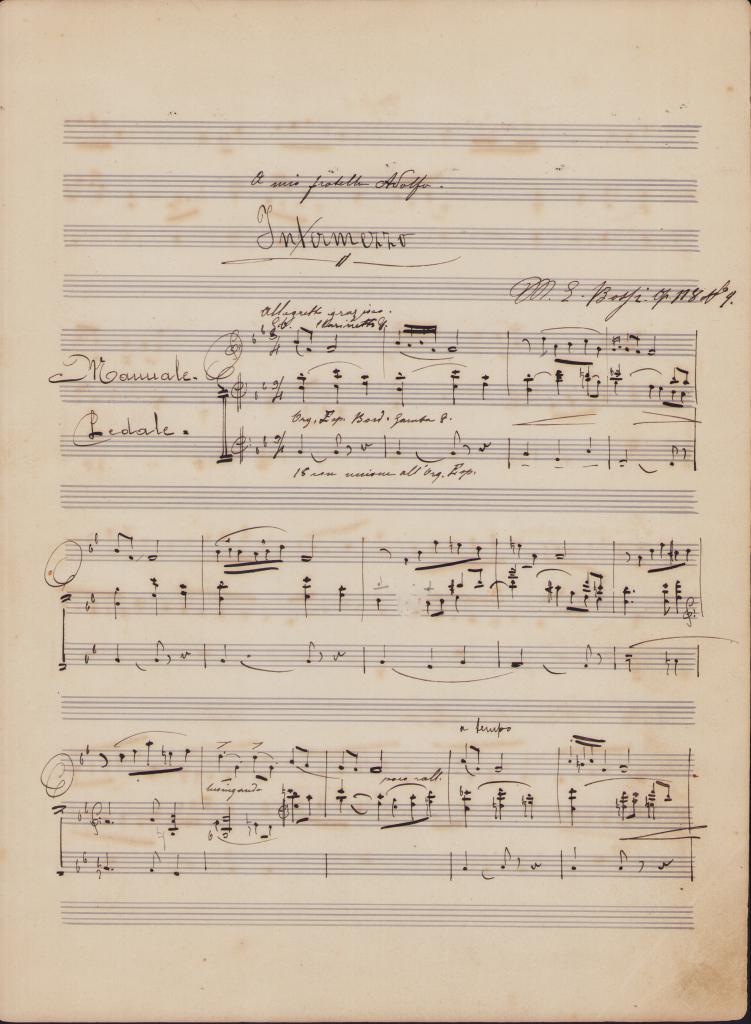 A mio fratello Adolfo.
Intermezzo
M. E. Bossi. Op. 118 N° 9.
Allegretto grazioso.
G.O. Clarinetto 8.
Manuale.
Org. Esp. Bord. Gamba 8.
Pedale.
16 con unione all'Org. Esp.
a tempo
poco rall.
lusingando